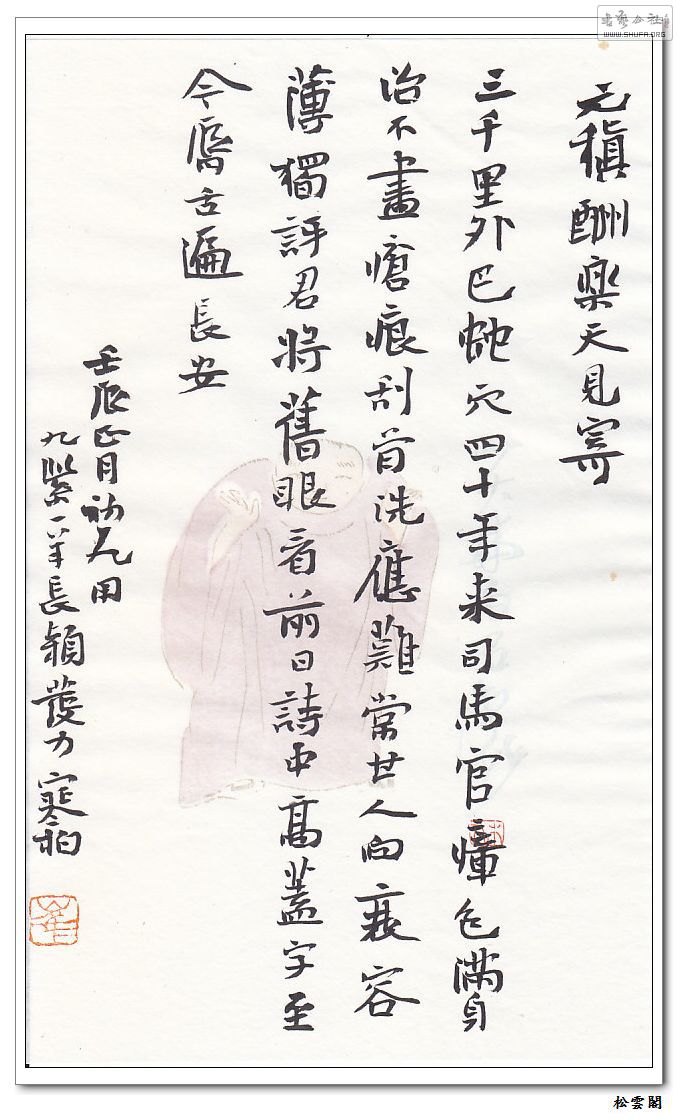 元稹酬樂天見寄
三千里外巴蛇穴四十年来司馬官瘴色滿身
治不盡瘡痕刮首洗應難常世人向衰容
薄獨訝君將舊眼看前日詩中高蓋字至
今脣舌遍長安
壬辰正月初九用
九紫一羊長穎 力 寒柏
書藝公社
WWW.SHUFA.ORG
松雲閣